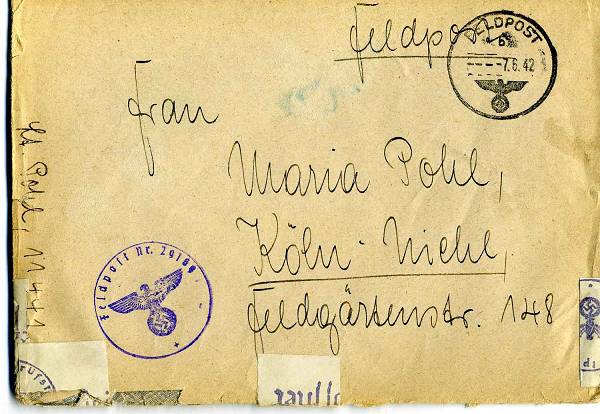 Feldpost
FELDPOST
b
7.6.42
Frau
Maria Pohl,
Köln-Niehl,
Feldgärtenstr. 148
Feldpost Nr. 29169
Pohl, 11441